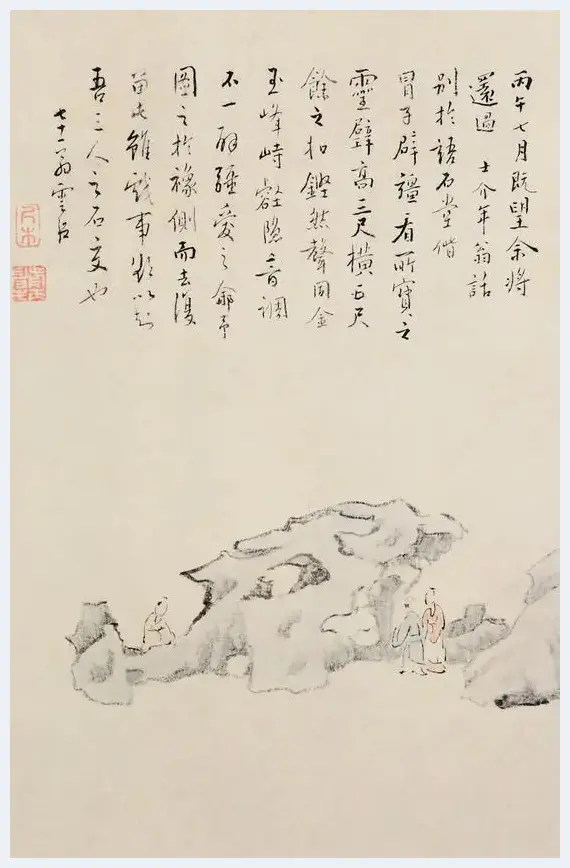 丙午七月既望余將
還過 士介年翁話
別於語石堂偕
冒子辟疆看所寶之
靈壁高三尺橫五尺
餘之扣鏗然聲同金
玉峰峙隱音調
不一辟疆愛之命予
圖之於側而去復
雖戲事以
吾三人之石交也
七十一翁雲臣